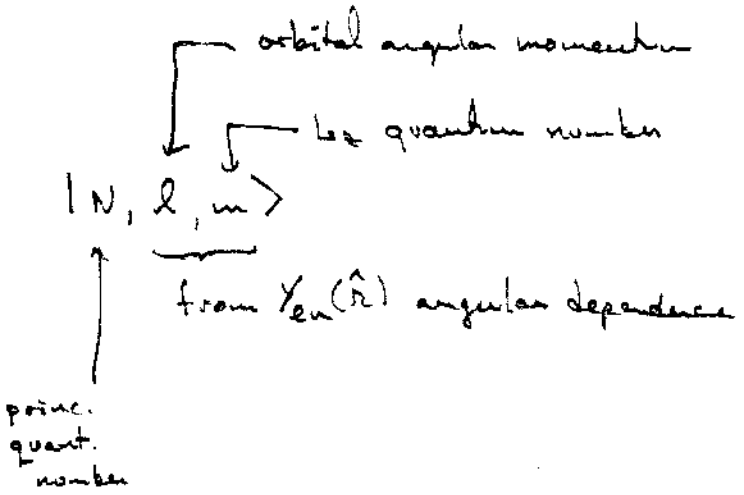 orbital angular momentum
Lz quantum number
|N, l, m>
from Yem(r̂) angular dependence
princ.
quant.
number